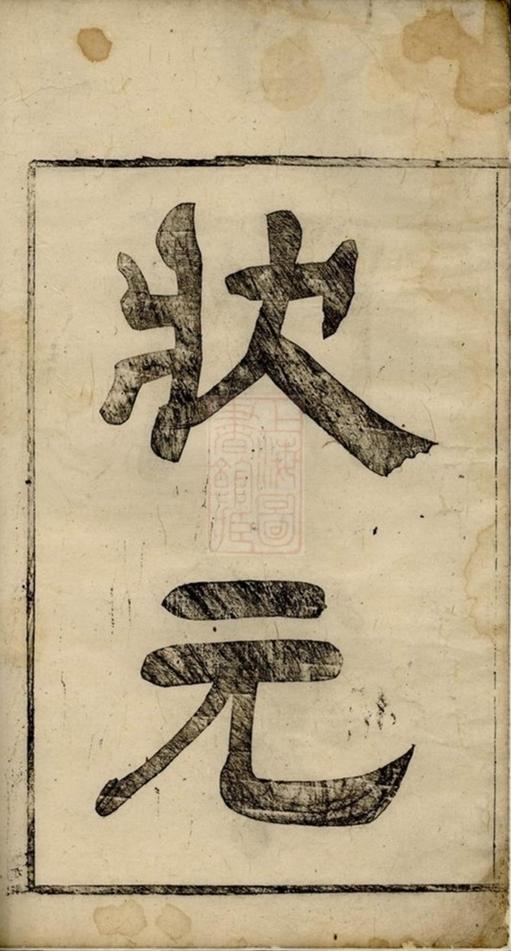 狀元
上海圖書館藏